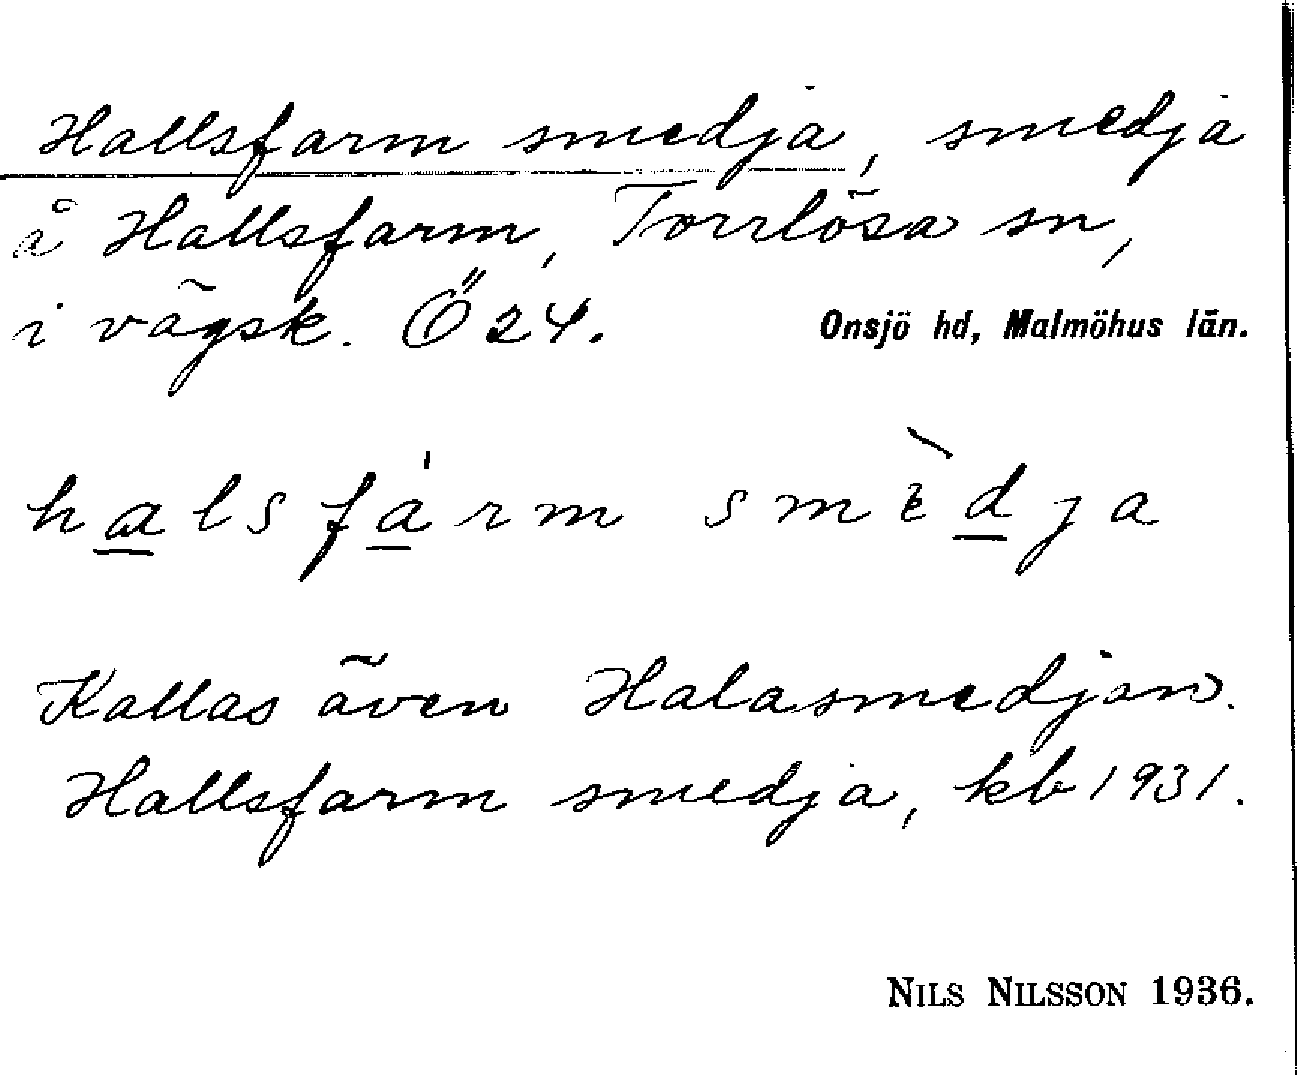 Hallsfarm smedja, smedja
å Hallsfarm, Torrlösa sn,
i vägsk. Ö 24. Onsjö hd, Malmöhus län.
halsfárm smèdja
Kallas även Halasmedjan.
Hallsfarm smedja, kb 1931.
NILS NILSSON 1936.